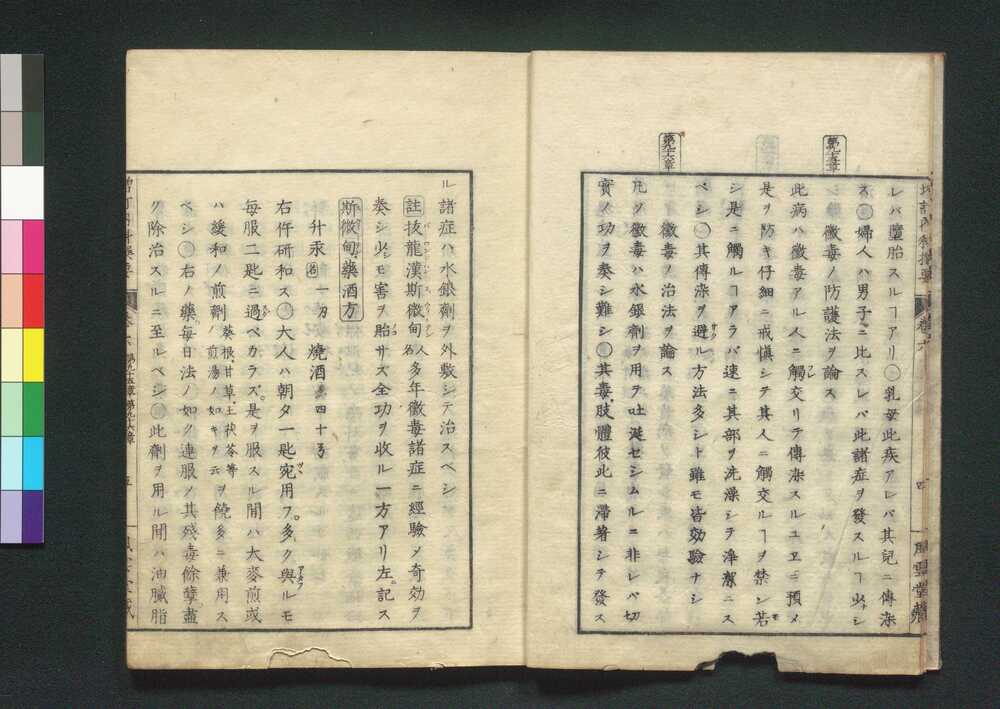 第九十五章
第九十六章
レバ墮胎スルヿアリ○乳母此疾アレバ其兒ニ傳染
ス○婦人ハ男子ニ比スレバ此諸症ヲ發スルヿ少シ
黴毒ノ防護法ヲ論ス
此病ハ黴毒アル人ニ觸交リテ傳染スルユヱニ預メ
是ヲ防キ仔細ニ戒愼シテ其人ニ觸交ルヿヲ禁シ若
シ是ニ觸ルヿアラバ速ニ其部ヲ洗澡シテ淨潔ニス
ベシ○其傳染ヲ避ル方法多シト雖モ皆効驗ナシ
黴毒ノ治法ヲ論ス
凡ソ黴毒ハ水銀劑ヲ用テ吐涎セシムルニ非レバ切
實ノ功ヲ奏シ難シ○其毒肢體彼此ニ滯著シテ發ス
四
風雲堂藏
ル諸症ハ水銀劑ヲ外敷シテ治スベシ
註 拔龍漢斯微甸人名多年黴毒諸症ニ經驗メ奇効ヲ
奏シ少シモ害ヲ胎サス全功ヲ收ル一方アリ左ニ記ス
斯微甸藥酒方
升汞 一 燒酒 四十
右件研和ス○大人ハ朝夕一匙宛用フ多ク與ルモ
每服二匙ニ過ベカラズ是ヲ服スル間ハ大麥煎或
ハ緩和ノ煎劑葵根甘草土茯苓等ノ煎湯ノ如キヲ云ヲ饒多ニ兼用ス
ベシ○右ノ藥每日法ノ如ク連服メ其殘毒餘孽盡
ク除治スルニ至ルベシ○此劑ヲ用ル間ハ油膩脂
卷六 第九十五章 第九十六章
五